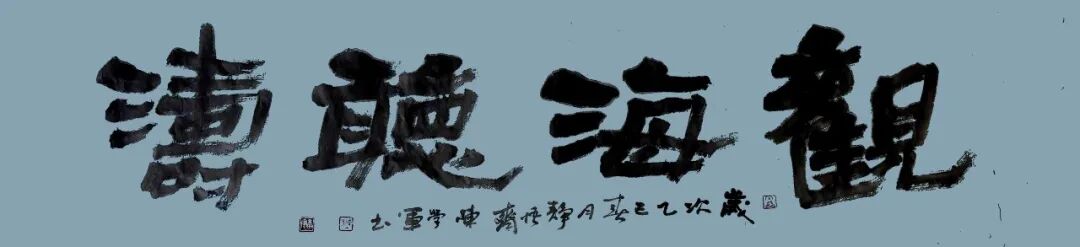 觀海聽濤
歲次乙巳春月靜悟齋陳學軍書